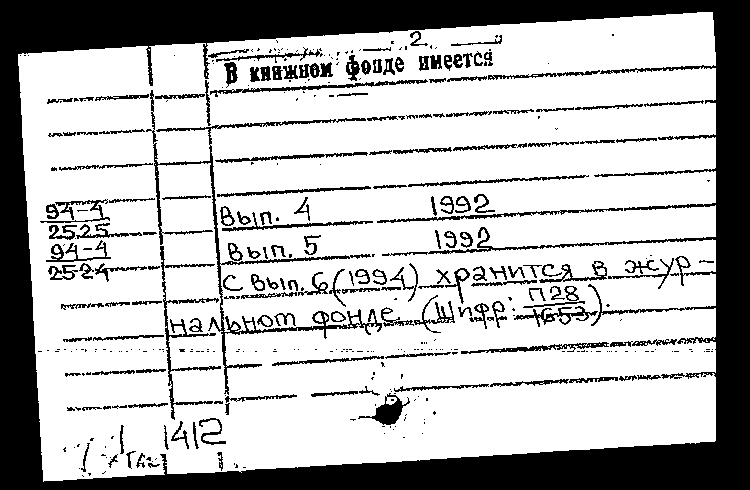 „ 2 "
В книжном фонде имеется
94-4
2525
Вып. 4 1992
94-4
2524
Вып. 5 1992
С Вып. 6 (1994) хранится в жур-
нальном фонде (Шифр: П28
1653).
1412